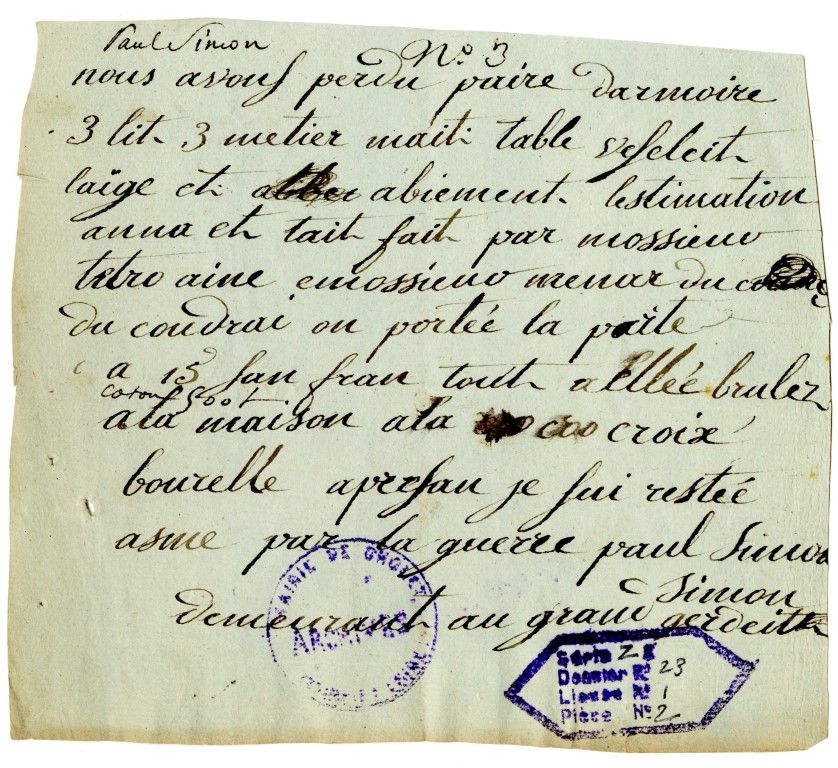 Paul Simon
No. 3
nous avons perdu paire darmoire
3 lit 3 metier mait table veseleit
laige et abiement lestimation
anna et tait fait par mossieur
tetro aine emossieur menar du
du coudrai on portée la parte
a 15 san fran tout alllée brulez
a la maison a la croix
bourelle apresan je sui restée
asme par la guerre paul Simon
Simon
demeurant au grand
MAIRIE DE
ARCHIVES
Série Z
Dossier N° 23
Liasse N° 1
Pièce N° 2